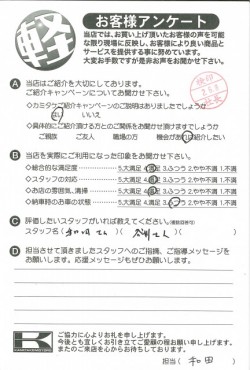 軽
お客様アンケート
当店では、お買い上げ頂いたお客様の声を可能な
限り現場に反映し、お客様により良い商品と
サービスを提供する事に努めています。
大変お手数ですが是非お声をお聞かせ下さい。
A 当店はご紹介を大切にしております。
ご紹介キャンペーンについてお聞かせ下さい。
◇カミタケご紹介キャンペーンのご説明はありましたでしょうか
はい いいえ
◇具体的にご紹介頂ける方とのご関係をお聞かせ頂けますでしょうか
ご親族 ご友人 職場の方 機会があれば紹介したい
B 当店を実際にご利用になった印象をお聞かせ下さい。
◇総合的な満足度 5.大満足 4.満足 3.ふつう 2.やや不満 1.不満
◇スタッフの対応 5.大満足 4.満足 3.ふつう 2.やや不満 1.不満
◇お店の雰囲気、清掃 5.大満足 4.満足 3.ふつう 2.やや不満 1.不満
◇納車時のお車の状態 5.大満足 4.満足 3.ふつう 2.やや不満 1.不満
C 評価したいスタッフがいれば教えてください。(複数回答可)
スタッフ名( 和田さん )
D 担当させて頂きましたスタッフへのご指摘、ご指導メッセージを
お願いします。応援メッセージもぜひお願いします。
K
ご協力に心よりお礼を申し上げます。
今後とも宜しくお引き立てご愛顧の程お願い申し上げます。
またのご来店を心からお待ちしております。
担当( 和田 )